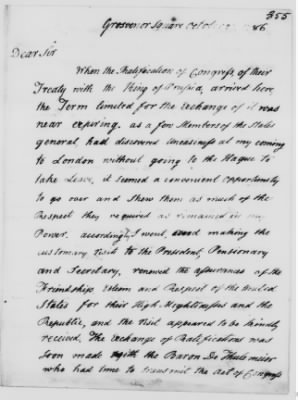 355
Grosvenor Square Octob. 86
Dear Sir
When the Ratification of Congress, of their
Treaty with the King of Prussia, arrived here
the Term limited for the exchange of it was
near expiring. as a few Members of the States
general, had discovered Uneasiness at my coming
to London without going to the Hague to
take Leave, it seemed a convenient opportunity
to go over and shew them as much of the
Respect they required as remained in my
Power. accordingly I went, and making the
customary Visit to the President, Pensionary
and Secretary, renewed the assurances of the
Friendship Esteem and Respect of the United
States for their High Mightinesses and the
Republic, and the visit appeared to be kindly
received. The exchange of Ratifications was
soon made with the Baron De Thulemeier
who had time to transmit the act of Congress